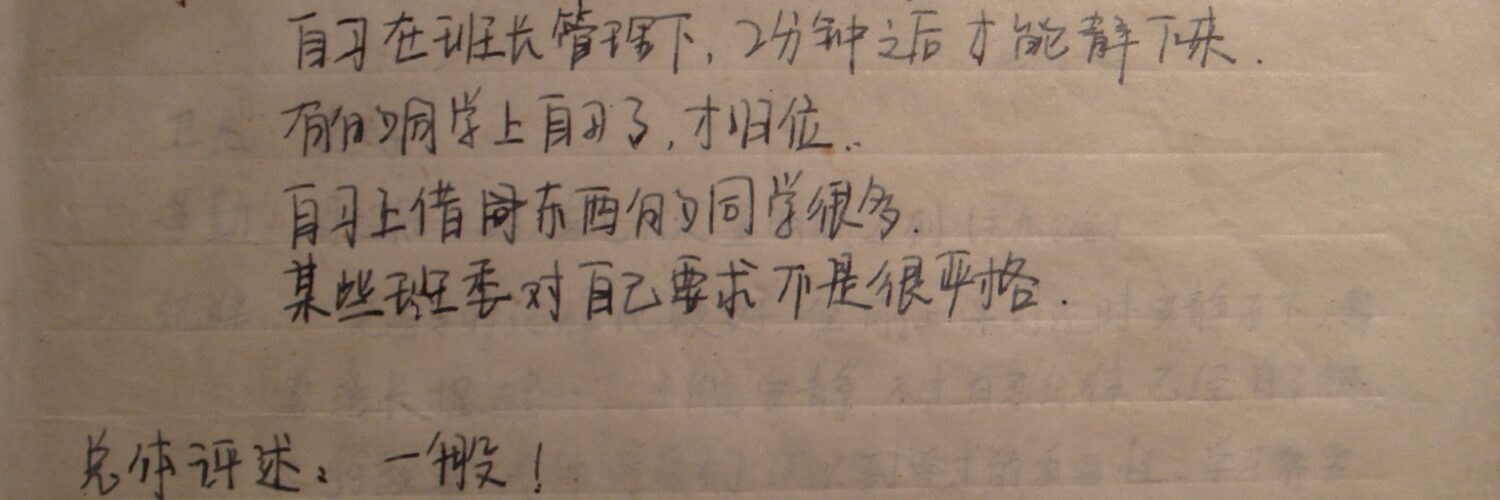 自习在班长管理下,2分钟之后才能静下来.
有的同学上自习了,才归位..
自习上借东西的同学很多.
某些班委对自己要求不是很严格.
总体评述:一般!